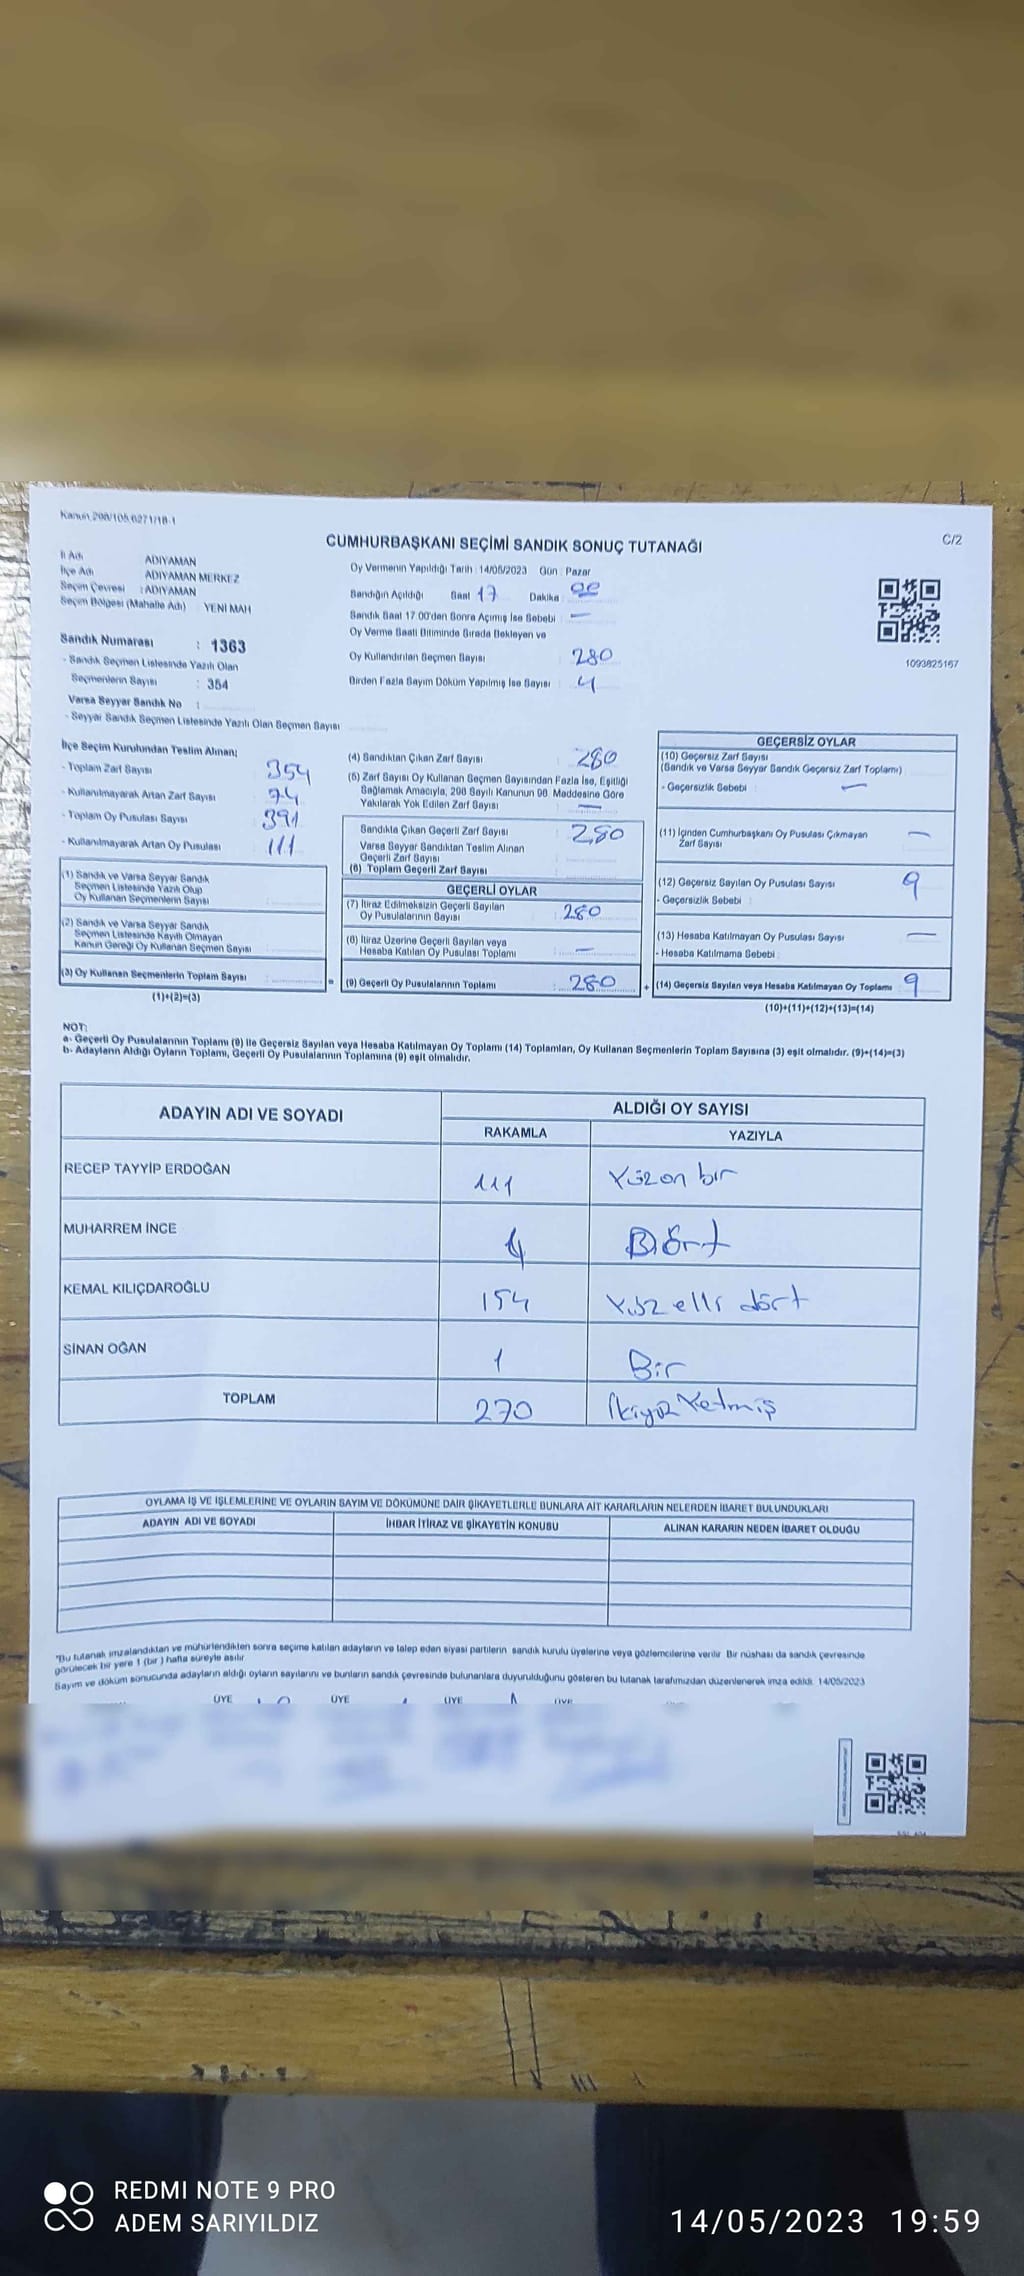 Kanun 298/105,6271/18-1
C/2
CUMHURBAŞKANI SEÇİMİ SANDIK SONUÇ TUTANAĞI
İl Adı ADIYAMAN
İlçe Adı ADIYAMAN MERKEZ
Seçim Çevresi : ADIYAMAN
Seçim Bölgesi (Mahalle Adı) YENİ MAH
Oy Vermenin Yapıldığı Tarih : 14/05/2023 Gün : Pazar
Sandığın Açıldığı Saat 17 Dakika : 00
Sandık Saat 17:00'den Sonra Açılmış İse Sebebi : —
Oy Verme Saati Bitiminde Sırada Bekleyen ve
Oy Kullandırılan Seçmen Sayısı 280
Birden Fazla Sayım Döküm Yapılmış İse Sayısı 4
1093825167
Sandık Numarası : 1363
- Sandık Seçmen Listesinde Yazılı Olan
Seçmenlerin Sayısı : 354
Varsa Seyyar Sandık No :
- Seyyar Sandık Seçmen Listesinde Yazılı Olan Seçmen Sayısı
İlçe Seçim Kurulundan Teslim Alınan;
- Toplam Zarf Sayısı 354
- Kullanılmayarak Artan Zarf Sayısı 74
- Toplam Oy Pusulası Sayısı 391
- Kullanılmayarak Artan Oy Pusulası 111
(1) Sandık ve Varsa Seyyar Sandık
Seçmen Listesinde Yazılı Olup
Oy Kullanan Seçmenlerin Sayısı
(2) Sandık ve Varsa Seyyar Sandık
Seçmen Listesinde Kayıtlı Olmayan
Kanun Gereği Oy Kullanan Seçmen Sayısı
(3) Oy Kullanan Seçmenlerin Toplam Sayısı
(1)+(2)=(3)
(4) Sandıktan Çıkan Zarf Sayısı 280
(5) Zarf Sayısı Oy Kullanan Seçmen Sayısından Fazla İse, Eşitliği
Sağlamak Amacıyla, 298 Sayılı Kanunun 98. Maddesine Göre
Yakılarak Yok Edilen Zarf Sayısı —
Sandıkta Çıkan Geçerli Zarf Sayısı 280
Varsa Seyyar Sandıktan Teslim Alınan
Geçerli Zarf Sayısı
(6) Toplam Geçerli Zarf Sayısı
GEÇERLİ OYLAR
(7) İtiraz Edilmeksizin Geçerli Sayılan
Oy Pusulalarının Sayısı 280
(8) İtiraz Üzerine Geçerli Sayılan veya
Hesaba Katılan Oy Pusulası Toplamı —
= (9) Geçerli Oy Pusulalarının Toplamı 280
GEÇERSİZ OYLAR
(10) Geçersiz Zarf Sayısı
(Sandık ve Varsa Seyyar Sandık Geçersiz Zarf Toplamı)
- Geçersizlik Sebebi : —
(11) İçinden Cumhurbaşkanı Oy Pusulası Çıkmayan
Zarf Sayısı —
(12) Geçersiz Sayılan Oy Pusulası Sayısı 9
- Geçersizlik Sebebi :
(13) Hesaba Katılmayan Oy Pusulası Sayısı —
- Hesaba Katılmama Sebebi :
+ (14) Geçersiz Sayılan veya Hesaba Katılmayan Oy Toplamı 9
(10)+(11)+(12)+(13)=(14)
NOT:
a- Geçerli Oy Pusulalarının Toplamı (9) ile Geçersiz Sayılan veya Hesaba Katılmayan Oy Toplamı (14) Toplamları, Oy Kullanan Seçmenlerin Toplam Sayısına (3) eşit olmalıdır. (9)+(14)=(3)
b- Adayların Aldığı Oyların Toplamı, Geçerli Oy Pusulalarının Toplamına (9) eşit olmalıdır.
ADAYIN ADI VE SOYADI ALDIĞI OY SAYISI
RAKAMLA YAZIYLA
RECEP TAYYİP ERDOĞAN 111 Yüzon bir
MUHARREM İNCE 4 Dört
KEMAL KILIÇDAROĞLU 154 Yüz elli dört
SİNAN OĞAN 1 Bir
TOPLAM 270 İkiyüz Yetmiş
OYLAMA İŞ VE İŞLEMLERİNE VE OYLARIN SAYIM VE DÖKÜMÜNE DAİR ŞİKAYETLERLE BUNLARA AİT KARARLARIN NELERDEN İBARET BULUNDUKLARI
ADAYIN ADI VE SOYADI İHBAR İTİRAZ VE ŞİKAYETİN KONUSU ALINAN KARARIN NEDEN İBARET OLDUĞU
*Bu tutanak imzalandıktan ve mühürlendikten sonra seçime katılan adayların ve talep eden siyasi partilerin sandık kurulu üyelerine veya gözlemcilerine verilir. Bir nüshası da sandık çevresinde
görülecek bir yere 1 (bir) hafta süreyle asılır
Sayım ve döküm sonucunda adayların aldığı oyların sayılarını ve bunların sandık çevresinde bulunanlara duyurulduğunu gösteren bu tutanak tarafımızdan düzenlenerek imza edildi. 14/05/2023
ÜYE ÜYE ÜYE ÜYE
REDMI NOTE 9 PRO
ADEM SARIYILDIZ
14/05/2023 19:59